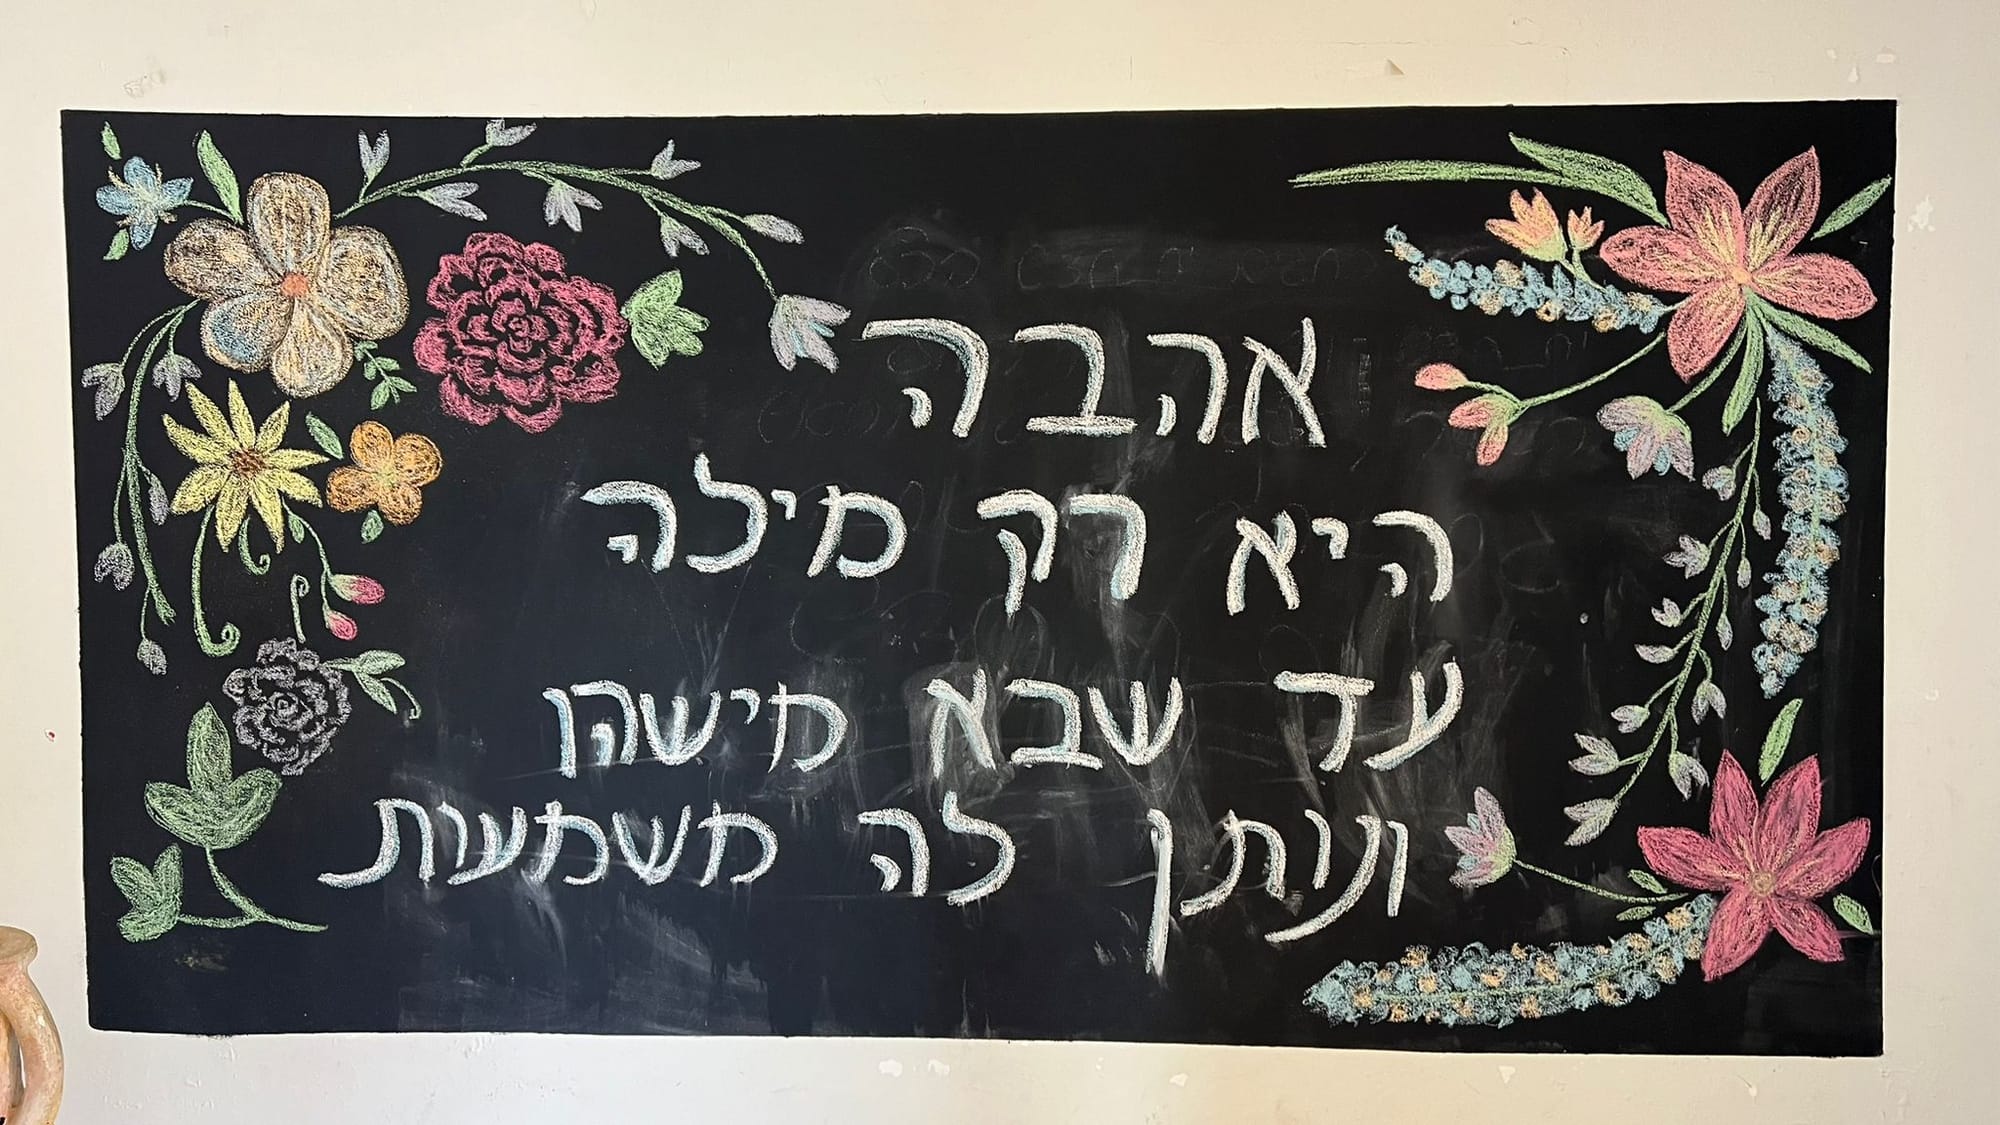 אהבה
היא רק מילה
עד שבא מישהו
ונותן לה משמעות